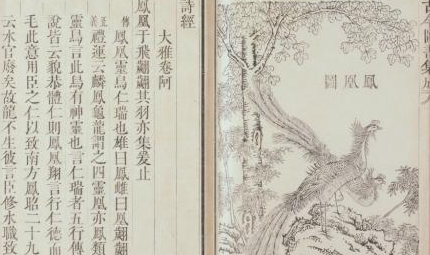 鳳凰圖
詩經
大雅卷阿
鳳凰于飛翽翽其羽亦集爰止
傳鳳凰靈鳥仁瑞也雄曰鳳雌曰凰翽翽
正義禮運云麟鳳龜龍謂之四靈凰亦鳳類
靈鳥言此鳥有神靈也言仁瑞者五行傳
說皆云貌恭體仁則鳳凰翔言行仁德而
毛此意用臣之仁以致南方鳳昭二十九
云水官廢矣故龍不生彼言臣修水職致